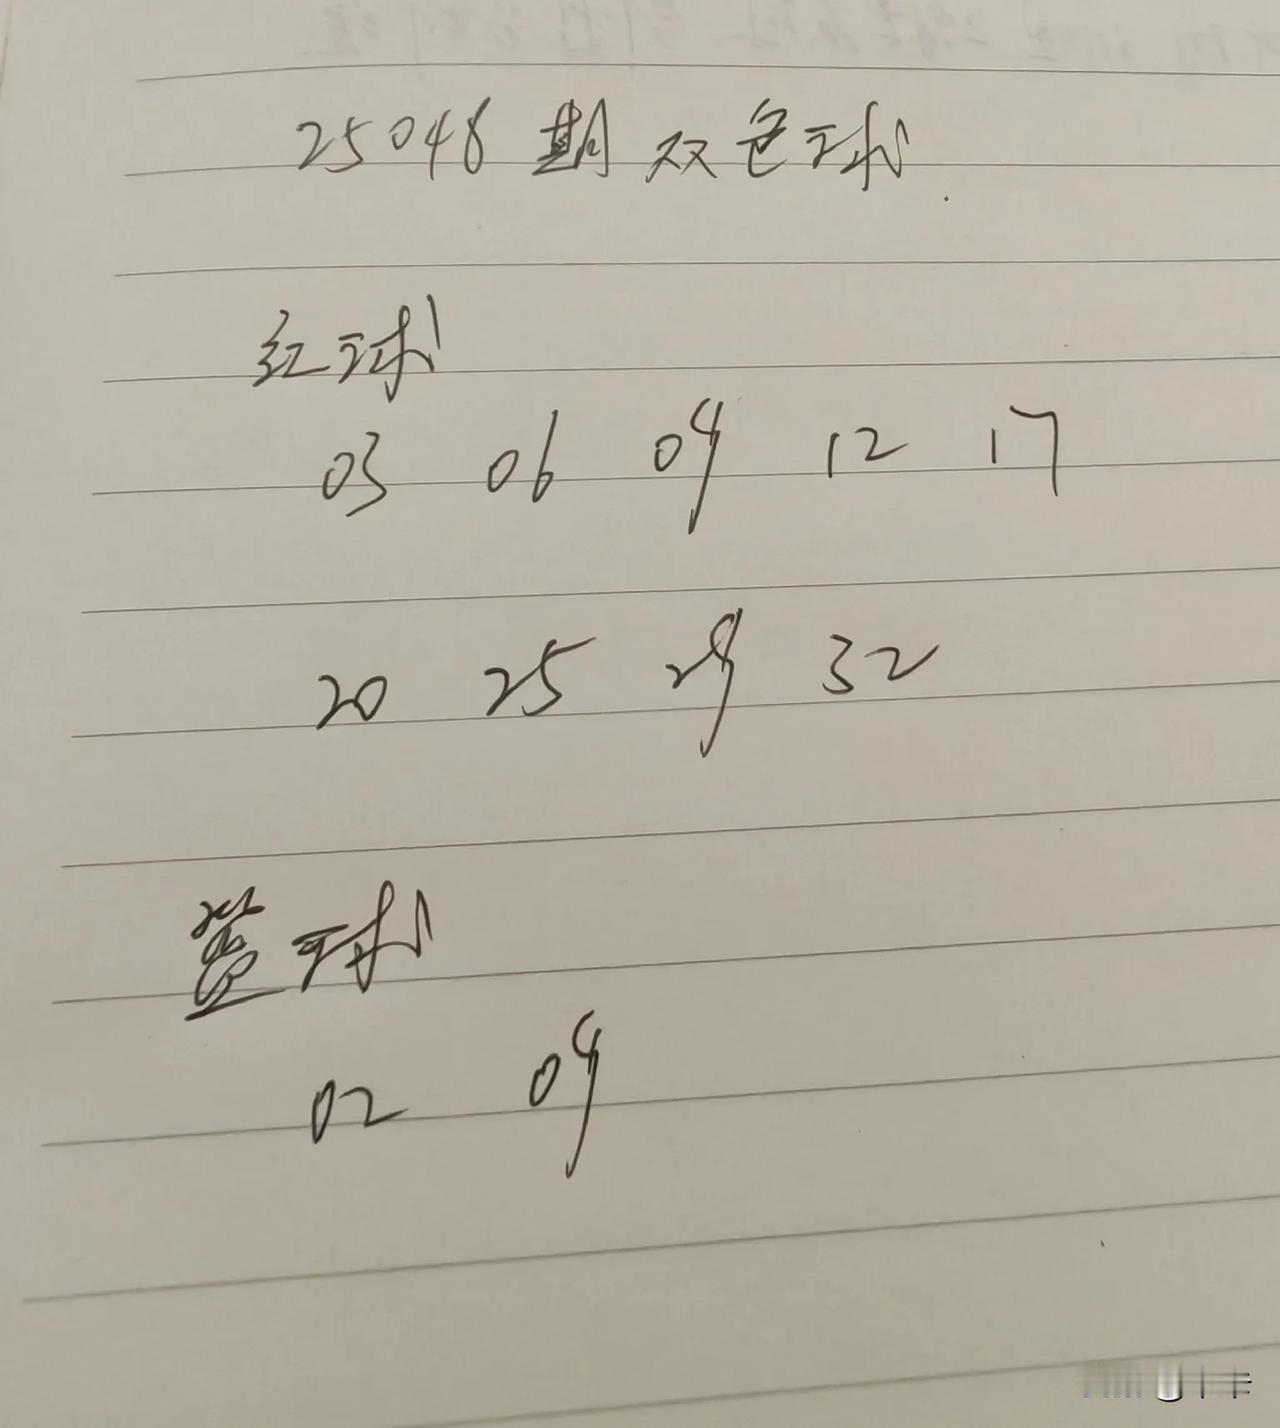 25048期双色球
红球
03 06 09 12 17
20 25 29 32
蓝球
02 09